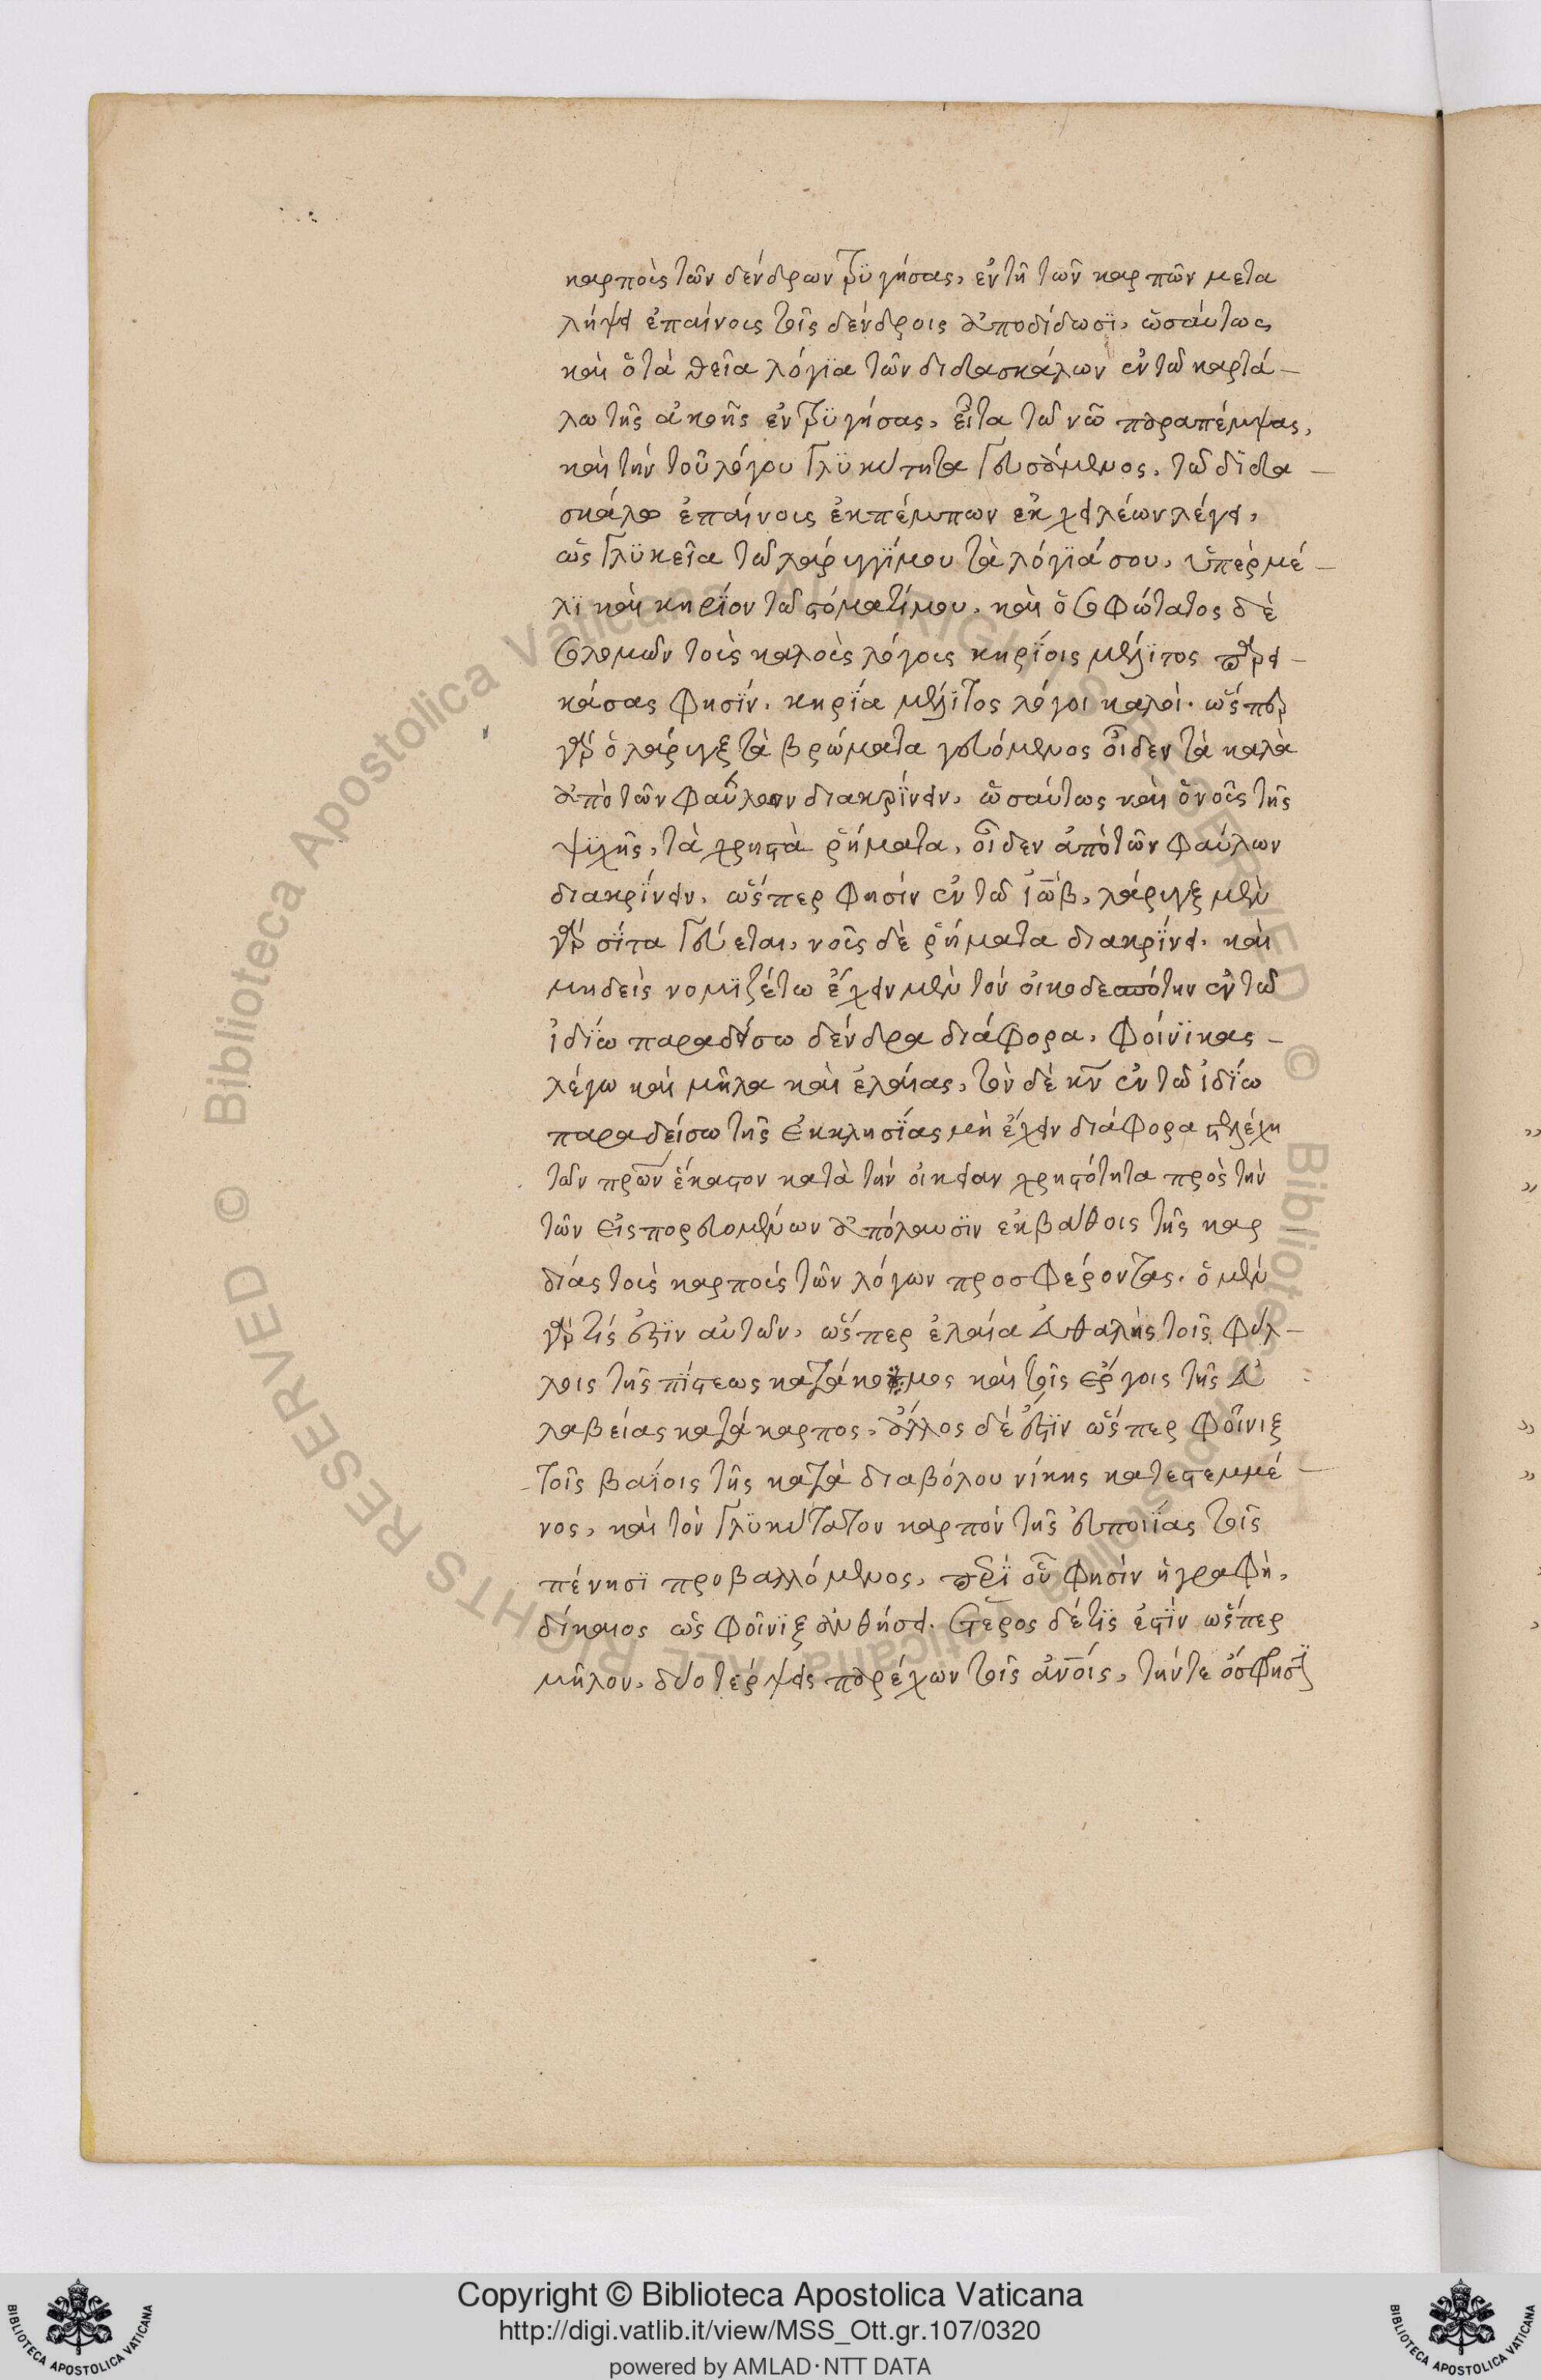 καρποὺς τῶν δένδρων τρϋγήσας, ἐν τῆ τῶν καρπῶν μετα
λήψει ἐπαίνους τοῖς δένδροις ἀποδίδωσϊ, ὡσαύτως
καὶ ὁ τὰ θεῖα λόγϊα τῶν διδασκάλων ἐν τῶ καρτά-
λω τῆς ἀκοῆς ἐντρϋγήσας, εἶτα τῶ νοῒ παραπέμψας,
καὶ τὴν τοῦ λόγου γλϋκύτητα γευσάμενος, τῶ δϊδα-
σκάλω ἐπαίνους ἐκπέμπων ἐκ χειλέων λέγει,
ὡς γλϋκεῖα τῶ λάρυγγΐ μου τὰ λόγϊά σου, ὑπὲρ μέ-
λϊ καὶ κηρΐον τῶ στόματί μου. καὶ ὁ σοφώτατος δὲ
σολομὼν τοὺς καλοὺς λόγους κηρΐοις μέλϊτος παρει-
κάσας φησΐν. κηρΐα μέλϊτος λόγοι καλοί. ὥσπερ
γὰρ ὁ λάρυγξ τὰ βρώματα γευόμενος οἶδεν τὰ καλὰ
ἀπὸ τῶν φαύλων διακρΐνειν, ὡσαύτως καὶ ὁ νοῦς τῆς
ψϋχῆς, τὰ χρηστὰ ῥήματα, οἶδεν ἀπὸ τῶν φαύλων
διακρΐνειν. ὥσπερ φησὶν ἐν τῶ ἰὼβ, λάρυγξ μὲν
γὰρ σῖτα γεύεται, νοῦς δὲ ῥήματα διακρΐνει. καὶ
μηδεὶς νομϊζέτω ἔχειν μὲν τὸν οἰκοδεσπότην ἐν τῶ
ἰδΐω παραδείσω δένδρα διάφορα, φοίνϊκας-
λέγω καὶ μῆλα καὶ ἐλαίας, τὸν δὲ κν ἐν τῶ ἰδΐω
παραδείσω τῆς ἐκκλησΐας μὴ ἔχειν διάφορα στελέχη
τῶν πρων ἕκαστον κατὰ τὴν οἰκείαν χρηστότητα πρὸς τὴν
τῶν εἰσπορευομένων ἀπόλαυσϊν ἐκ βάθους τῆς καρ
δίας τοὺς καρποὺς τῶν λόγων προσφέροντας. ὁ μὲν
γὰρ τίς ἐστϊν αὐτῶν, ὥσπερ ἐλαία εὐθαλὴς τοῖς φύλ-
λοις τῆς πΐστεως κατάκομος καὶ τοῖς ἔργοις τῆς εὐ
λαβείας κατάκαρπος, ἄλλος δέ ἐστϊν ὥσπερ φοῖνιξ
τοῖς βαΐοις τῆς κατὰ διαβόλου νίκης κατεστεμμέ-
νος, καὶ τὸν γλϋκύτατον καρπὸν τῆς εὐποιΐας τοῖς
πένησϊ προβαλλόμενος, περὶ οὗ φησὶν ἡ γραφὴ,
δίκαιος ὡς φοῖνϊξ ἀνθήσει. ἕτερος δέ τϊς ἐστΐν ὥσπερ
μῆλον, δύο τέρψεις παρέχων τοῖς ἀνοις, τήν τε ὄσφρησϊν